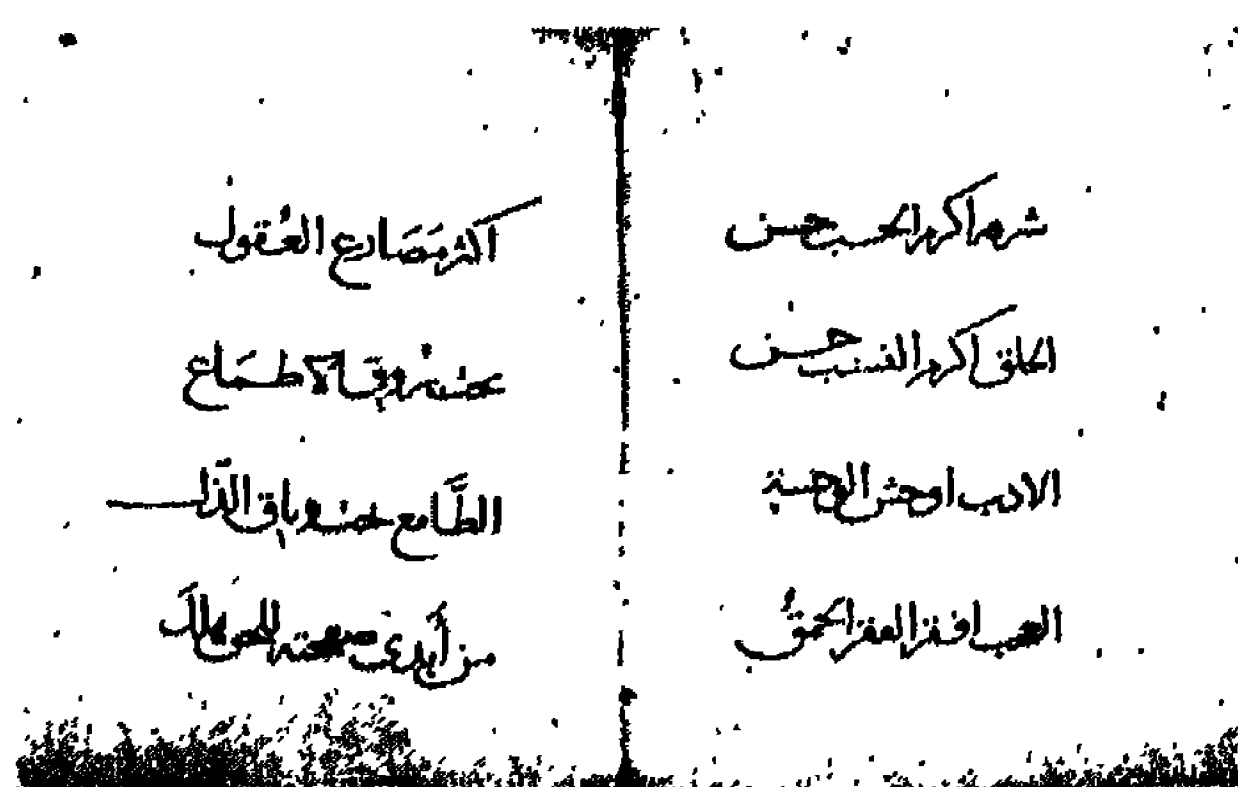 شره اكرم الحسب حسن
الخلق اكرم النسب حسن
الادب اوحش الوحشة
العجب افقر الفقر الحمقُ
اكثر مَصَارع العُقول
تحت بروق الاطماع
الطَّامع في وثاق الذل
من أبدى صفحته للحق هلك